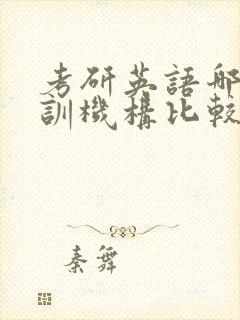 考研英語哪
訓機構比較
秦舞